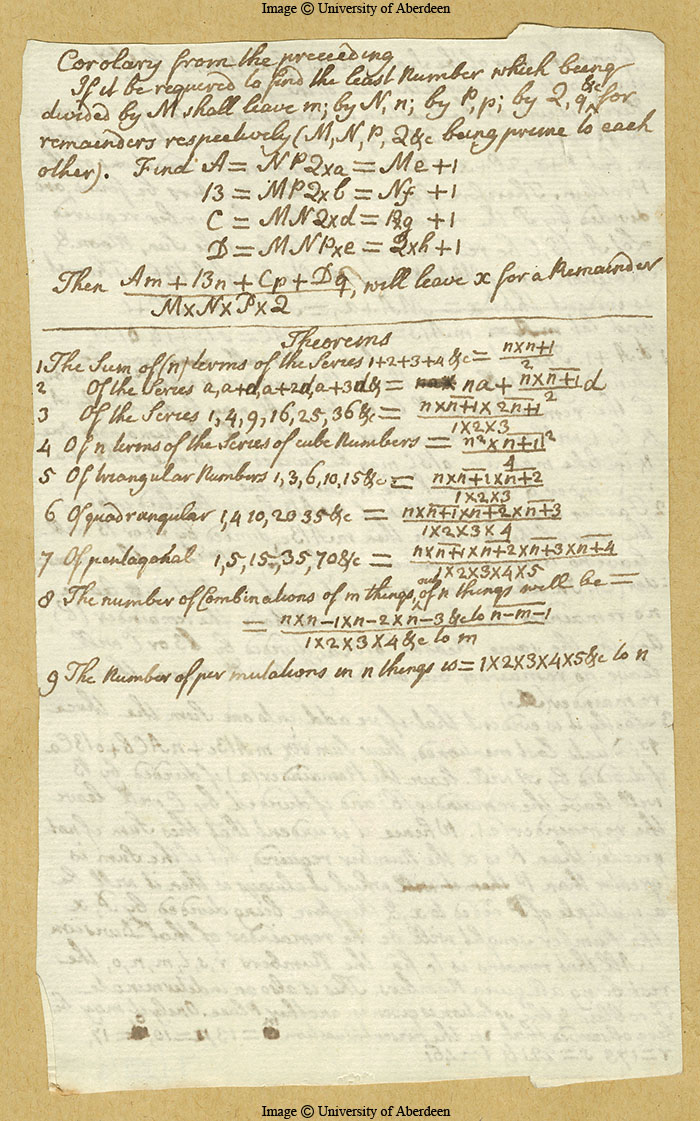 Image © University of Aberdeen
Corolary from the preceeding
If it be required to find the least Number which being
divided by M shall leave m; by N, n; by P, p; by Q, q &c for
remainders respectively (M, N, P, Q &c being prime to each
other). Find A = NPQxa = Me+1
B = MPQxb = Nf +1
C = MNQxd = Pg +1
D = MNPxe = Qxh+1
Then Am + Bn + Cp + Dq, will leave x for a Remainder
MxNxPxQ
Theorems
1 The Sum of (n) terms of the Series 1+2+3+4 &c = nxn+1
2
2 Of the Series a, a+d, a+2d, a+3d & = na + nxn+1 d
2
3 Of the Series 1, 4, 9, 16, 25, 36 &c = nxn+1x2n+1
1x2x3
4 Of n terms of the Series of cube Numbers = n²xn+1²
4
5 Of triangular Numbers 1, 3, 6, 10, 15 &c = nxn+1xn+2
1x2x3
6 Of quadrangular 1, 4 10, 20 35 &c = nxn+1xn+2xn+3
1x2x3x4
7 Of pentagonal 1, 5, 15, 35, 70 &c = nxn+1xn+2xn+3xn+4
1x2x3x4x5
8 The number of Combinations of m things, out of n things will be =
= nxn-1xn-2xn-3 &c to n-m-1
1x2x3x4 &c to m
9 The Number of permutations in n things is = 1x2x3x4x5 &c to n
Image © University of Aberdeen